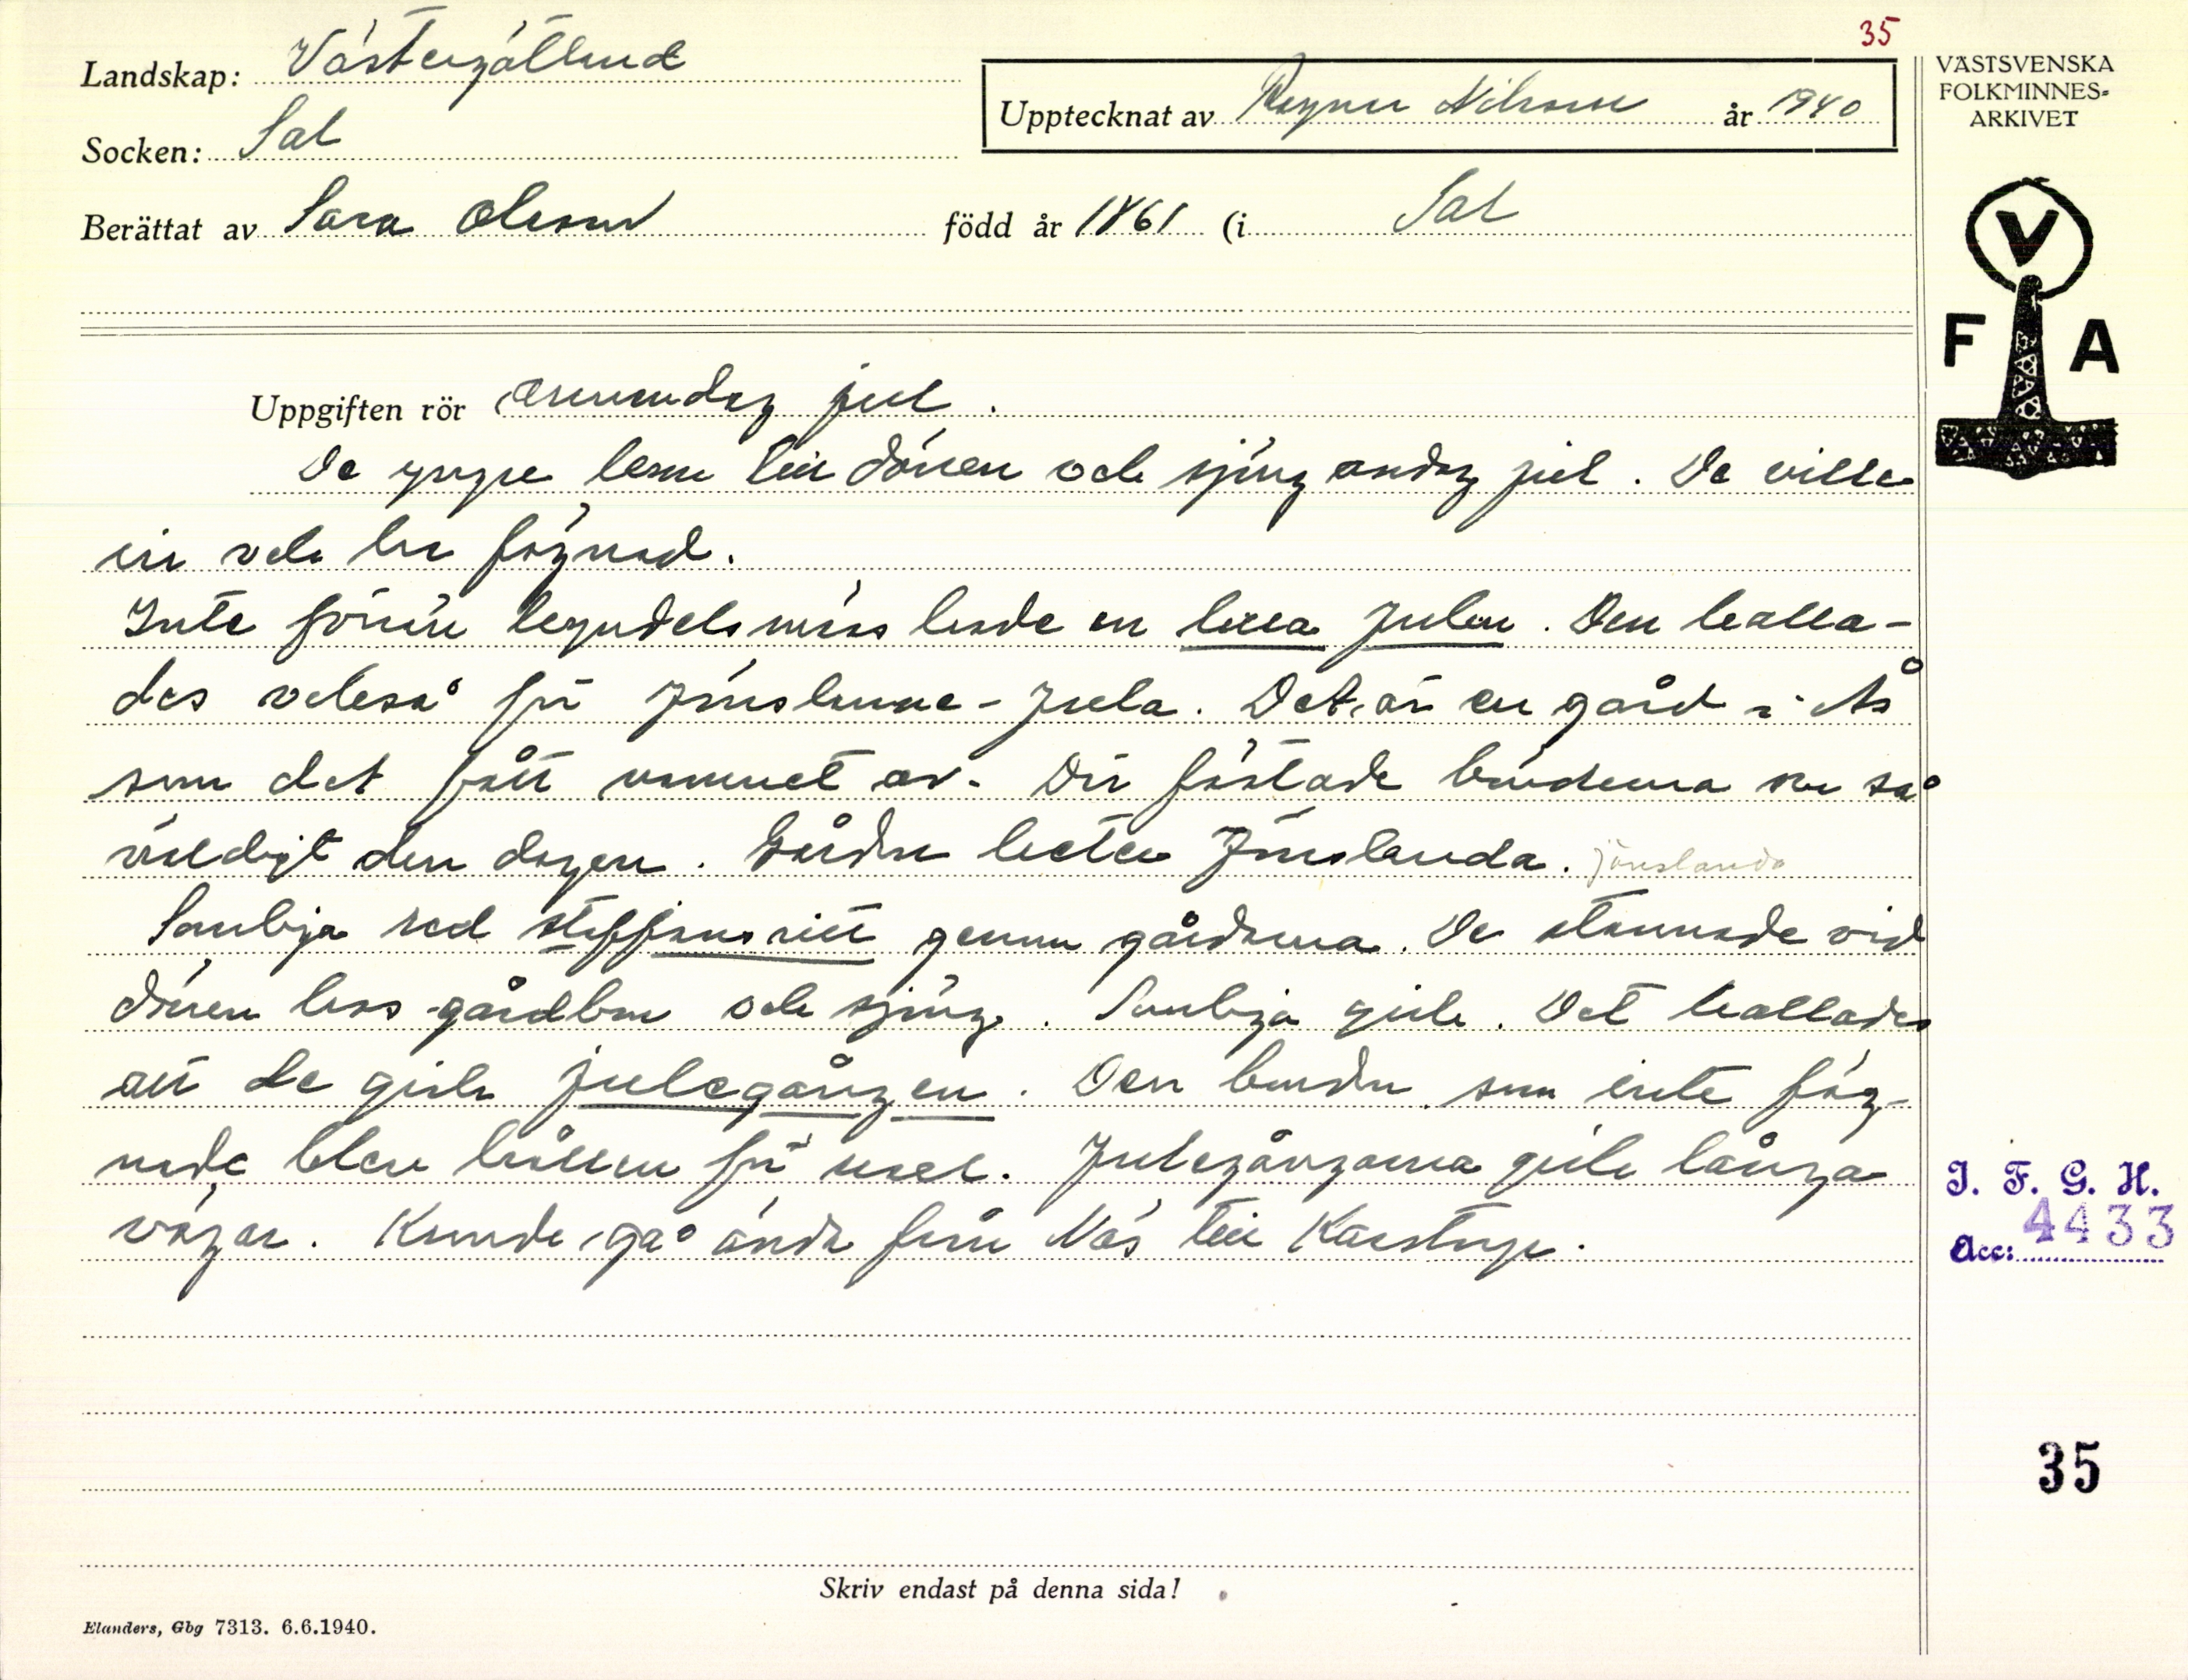 35
Landskap: Västergötland
Upptecknat av Ragnar Nilsson år 1940
VÄSTSVENSKA
FOLKMINNES-
ARKIVET
Socken: Sal
Berättat av Sara Olsson född år 1861 (i Sal
V
F A
Uppgiften rör Annandag jul.
De yngre kom till dörren och sjöng andag jul. De ville
in och ha fägnad.
Inte förrän kyndelsmäss hade en lilla julen. Den kalla-
des också för Jönslunne-Jula. Det är en gård i Ås
som det fått namnet av. Där festade bönderna om så
väldigt den dagen. Gården heter Jönslanda. Jönslanda
Somliga red staffansritt genom gårdarna. De stannade vid
dörren hos gårdbon och sjöng. Somliga gick. Det kallades
att de gick julegången. Den bonden som inte fäg-
nade blev hållen för usel. Julegångarna gick långa
vägar. Kunde gå ända från Näs till Karstorp.
I. F. G. H.
Acc: 4433
35
Skriv endast på denna sida!
Elanders, Gbg 7313. 6.6.1940.